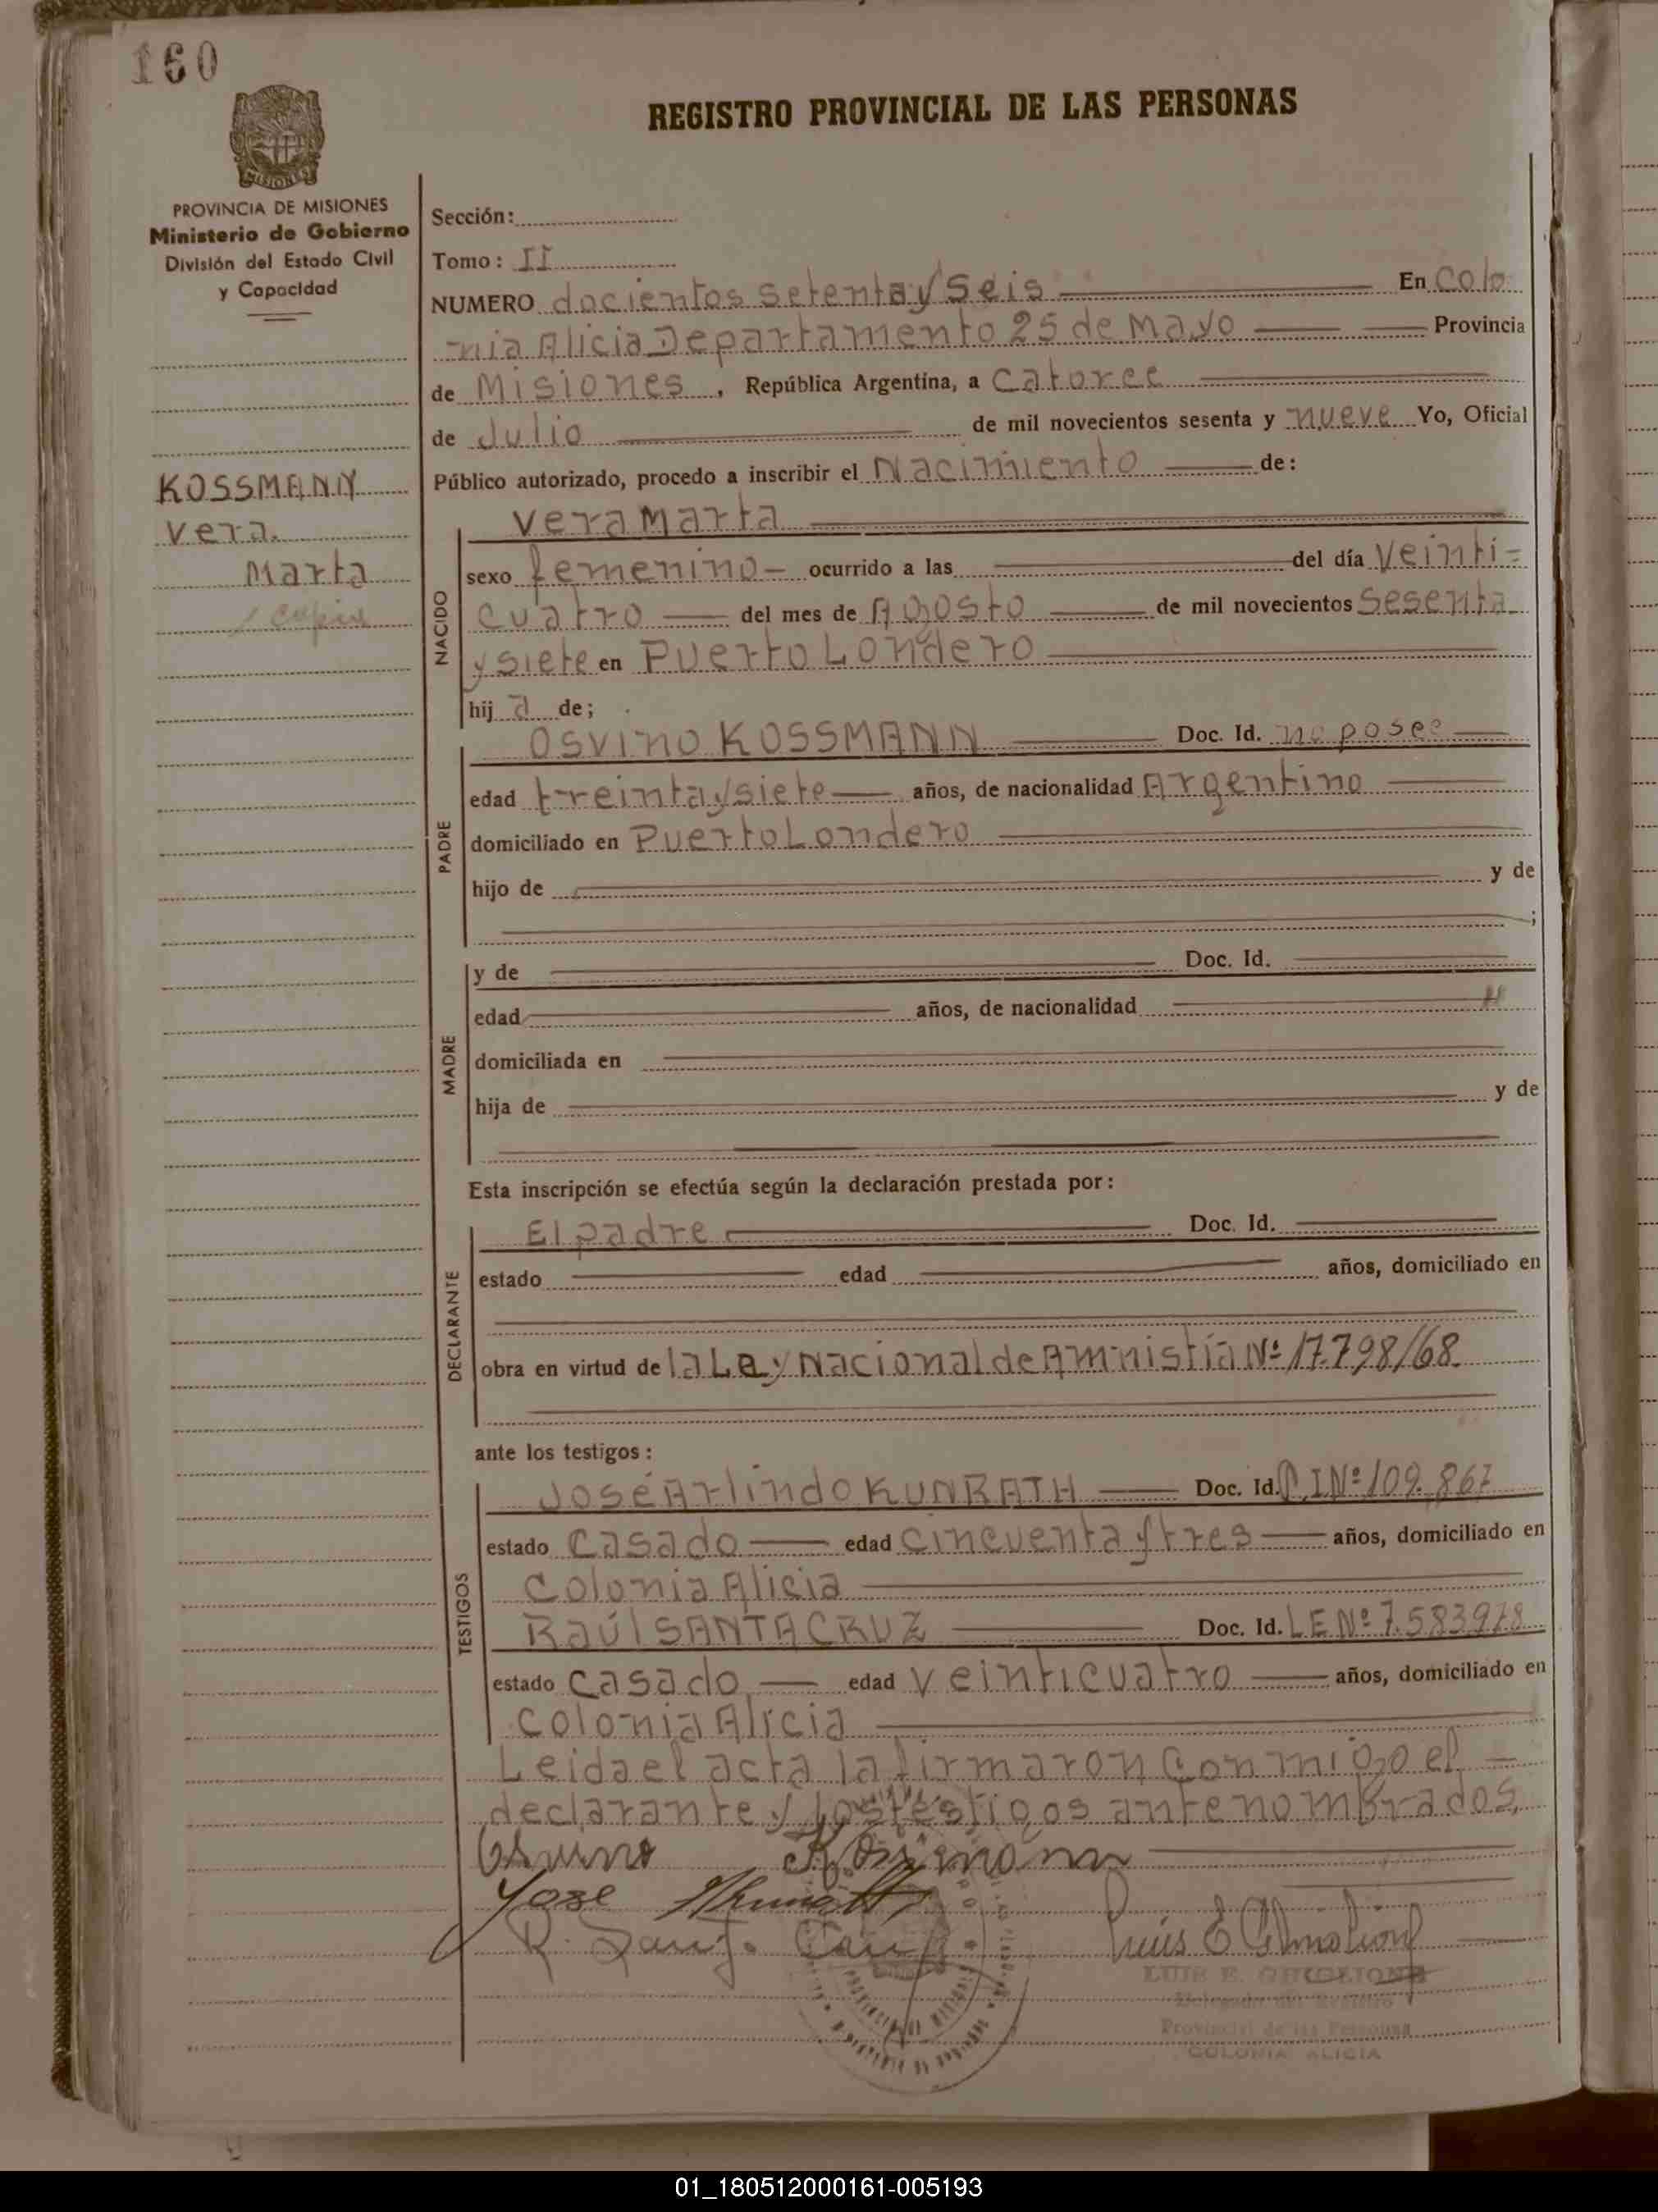 160
REGISTRO PROVINCIAL DE LAS PERSONAS
MISIONES
PROVINCIA DE MISIONES
Ministerio de Gobierno
División del Estado Civil
y Capacidad
KOSSMANN
Vera
Marta
Sección:
Tomo: II
NUMERO docientos setenta y seis En Colo
nia Alicia Departamento 25 de Mayo Provincia
de Misiones, República Argentina, a Catorce
de Julio de mil novecientos sesenta y nueve Yo, Oficial
Público autorizado, procedo a inscribir el Nacimiento de:
NACIDO
Vera Marta
sexo femenino ocurrido a las del día Veinti=
cuatro del mes de Agosto de mil novecientos Sesenta
y siete en Puerto Londero
hij a de;
PADRE
OSVINO KOSSMANN Doc. Id. no posee
edad treinta y siete años, de nacionalidad Argentino
domiciliado en Puerto Londero
hijo de y de
;
MADRE
y de Doc. Id.
edad años, de nacionalidad
domiciliada en
hija de y de
Esta inscripción se efectúa según la declaración prestada por:
DECLARANTE
El padre Doc. Id.
estado edad años, domiciliado en
obra en virtud de la Ley Nacional de Amnistía Nº 17.798/68.
ante los testigos:
TESTIGOS
José Arlindo KUNRATH Doc. Id. C.I Nº 109.867
estado Casado edad cincuenta y tres años, domiciliado en
Colonia Alicia
Raúl SANTA CRUZ Doc. Id. LE Nº 7.583978
estado Casado edad veinticuatro años, domiciliado en
Colonia Alicia
Leida el acta la firmaron conmigo el
declarante y los testigos antenombrados.
Osvino Kossmann
Jose Kunrath
R. Santa Cruz
LUIS E. GHIGLIONE
Delegado del Registro
Provincial de las Personas
COLONIA ALICIA
01_180512000161-005193